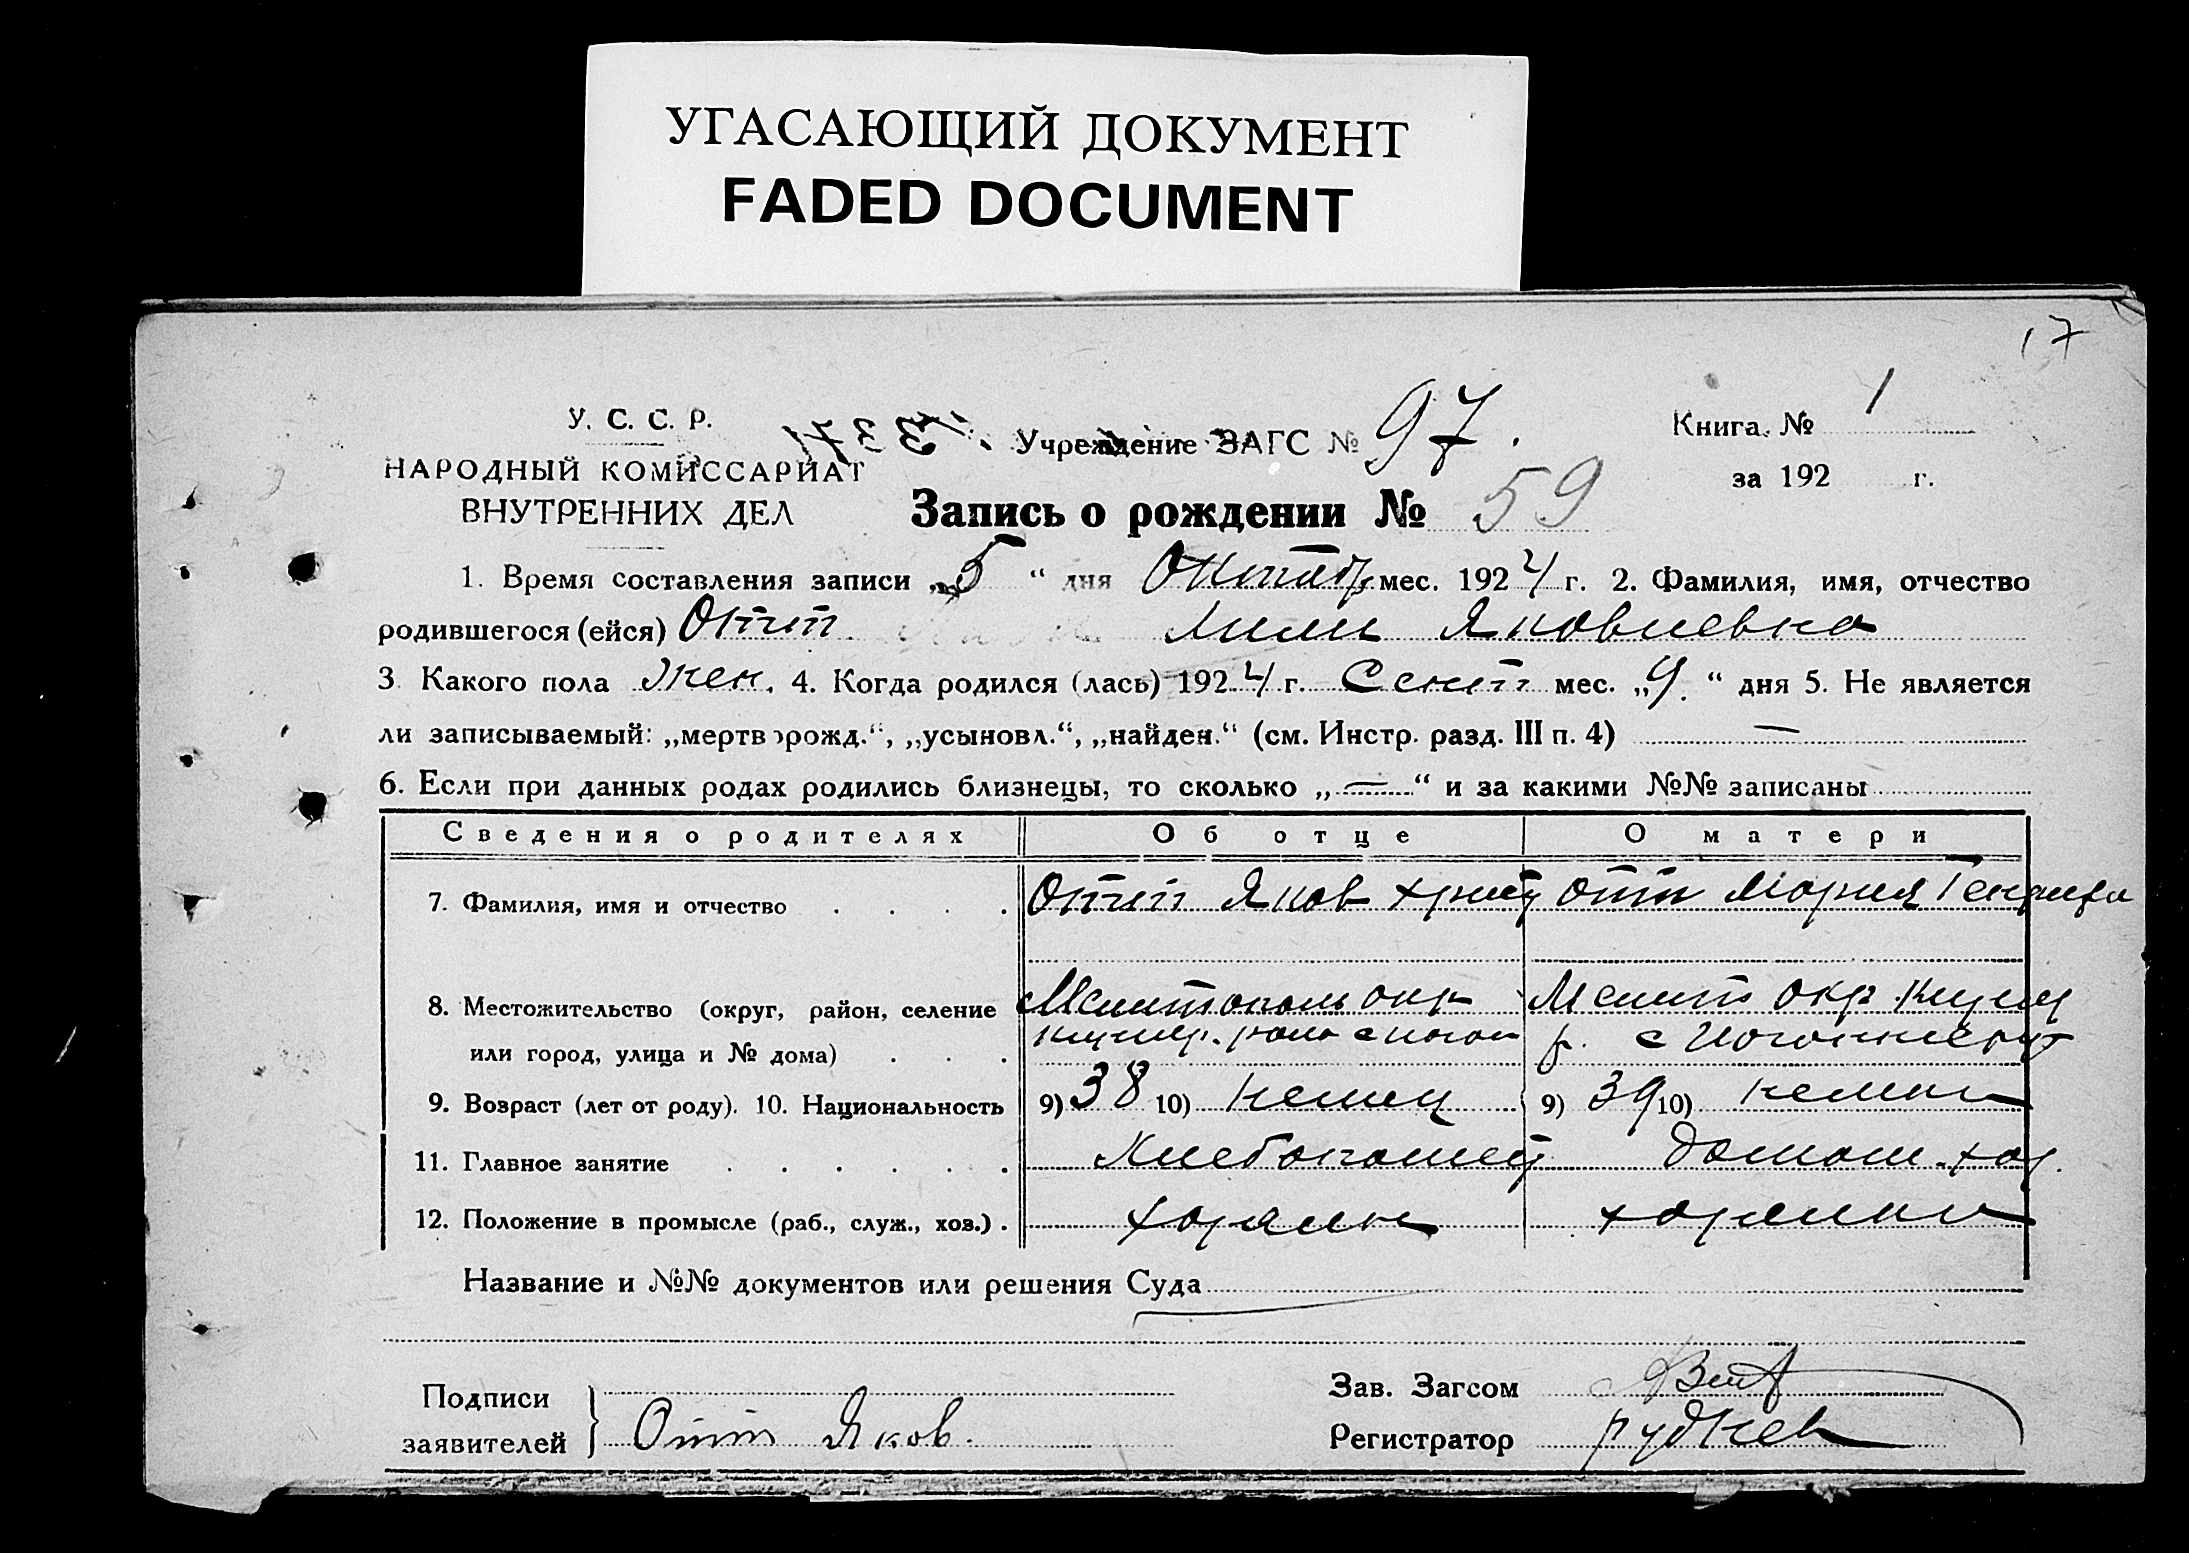 УГАСАЮЩИЙ ДОКУМЕНТ
FADED DOCUMENT
17
У. С. С. Р.
НАРОДНЫЙ КОМИССАРИАТ
ВНУТРЕННИХ ДЕЛ
Учреждение ЗАГС № 97.
Книга № 1
за 192 г.
Запись о рождении № 59
1. Время составления записи „5“ дня Октябр мес. 1924 г. 2. Фамилия, имя, отчество
родившегося (ейся) Отт Лили Яковлевна
3. Какого пола Жен. 4. Когда родился (лась) 1924 г. Сент мес. „9.“ дня 5. Не является
ли записываемый: „мертворожд.“, „усыновл.“, „найден.“ (см. Инстр. разд. III п. 4) —
6. Если при данных родах родились близнецы, то сколько „—“ и за какими №№ записаны
Сведения о родителях Об отце О матери
7. Фамилия, имя и отчество . . . . Отт Яков Отт Мария
8. Местожительство (округ, район, селение Мелитополь окр Мелит окр
или город, улица и № дома) . . . р. с
9. Возраст (лет от роду). 10. Национальность 9) 38 10) немец 9) 39 10) немка
11. Главное занятие . . . . . . Хлебопашец домаш. хоз.
12. Положение в промысле (раб., служ., хоз.) . хозяин хозяйка
Название и №№ документов или решения Суда
Подписи
заявителей } Отт Яков.
Зав. Загсом
Регистратор